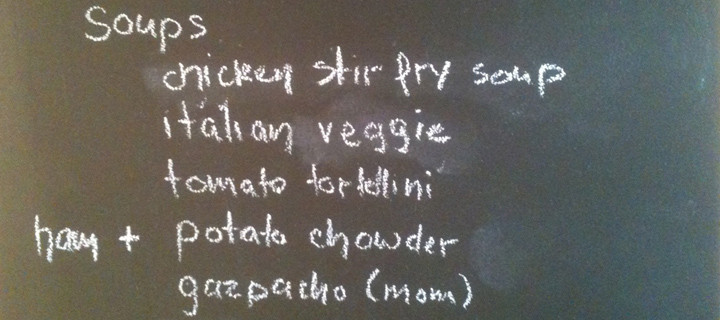 Soups
chicken stir fry soup
italian veggie
tomato tortellini
ham + potato chowder
gazpacho (mom)